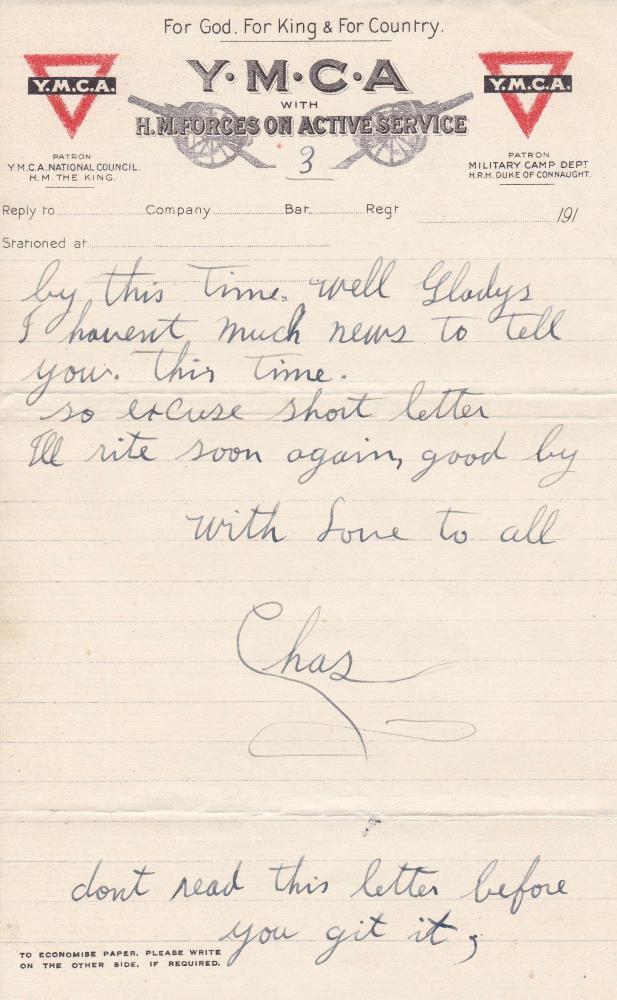 For God. For King & For Country.
Y.M.C.A.
Y·M·C·A
Y.M.C.A.
WITH
H.M. FORCES ON ACTIVE SERVICE
PATRON
Y.M.C.A. NATIONAL COUNCIL.
H.M. THE KING.
3
PATRON
MILITARY CAMP DEPT
H.R.H. DUKE OF CONNAUGHT.
Reply to Company Bat. Regt 191
Stationed at
by this time. well Gladys
I havent much news to tell
you. this time.
so excuse short letter
Ill rite soon again, good by
with Love to all
Chas
dont read this letter before
you git it,
TO ECONOMISE PAPER, PLEASE WRITE
ON THE OTHER SIDE, IF REQUIRED.